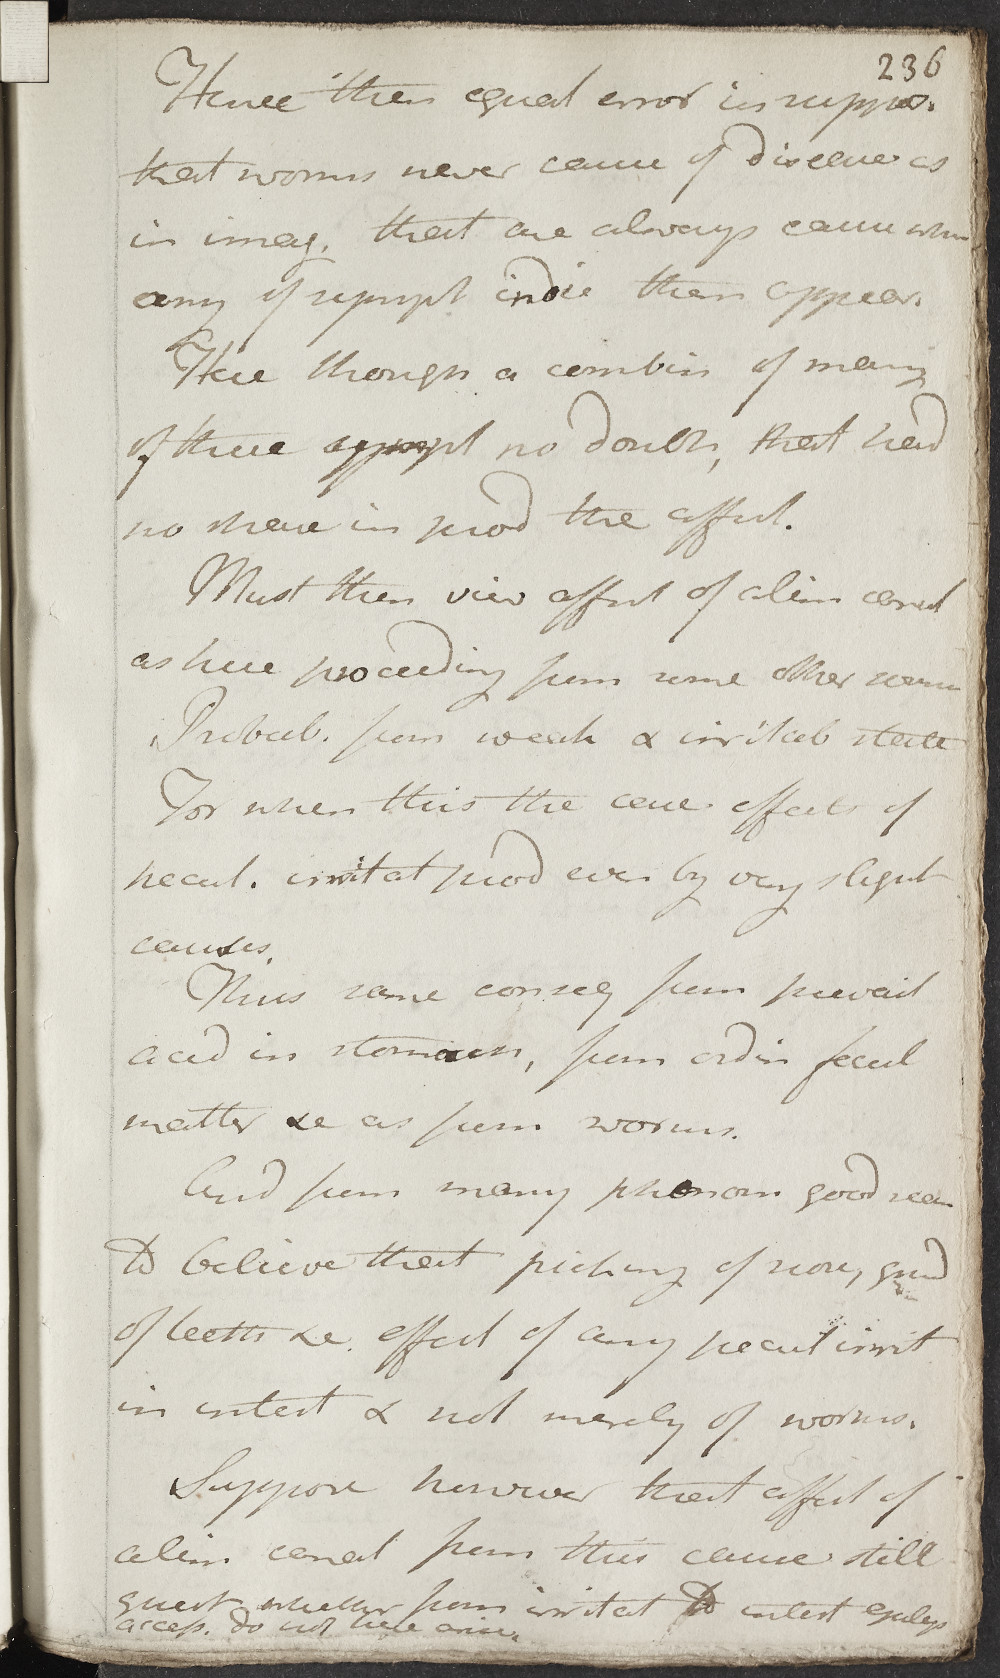 236
Hence then equal error in suppos.
that worms never cause of disease as
in imag. that are always cause when
any of sympt indic them appear.
Here though a combin of many
of these sympt no doubt, that had
no share in prod the affect.
Must then view affect of alim canal
as here proceeding from some other
Probab. from weak & irritab state
For when this the case effects of
pecul. irritat prod even by very slight
causes.
Thus same conseq from prevail
acid in stomach, from ordin fecul
matter &c as from worms.
And from many phenom good rea
to believe that picking of nose, grind
of teeth &c. effect of any pecul irrit
in intest & not merely of worms.
Suppose however that affect of
alim canal from this cause still
quest whether from irritat to intest epilep
access. do not here arise.